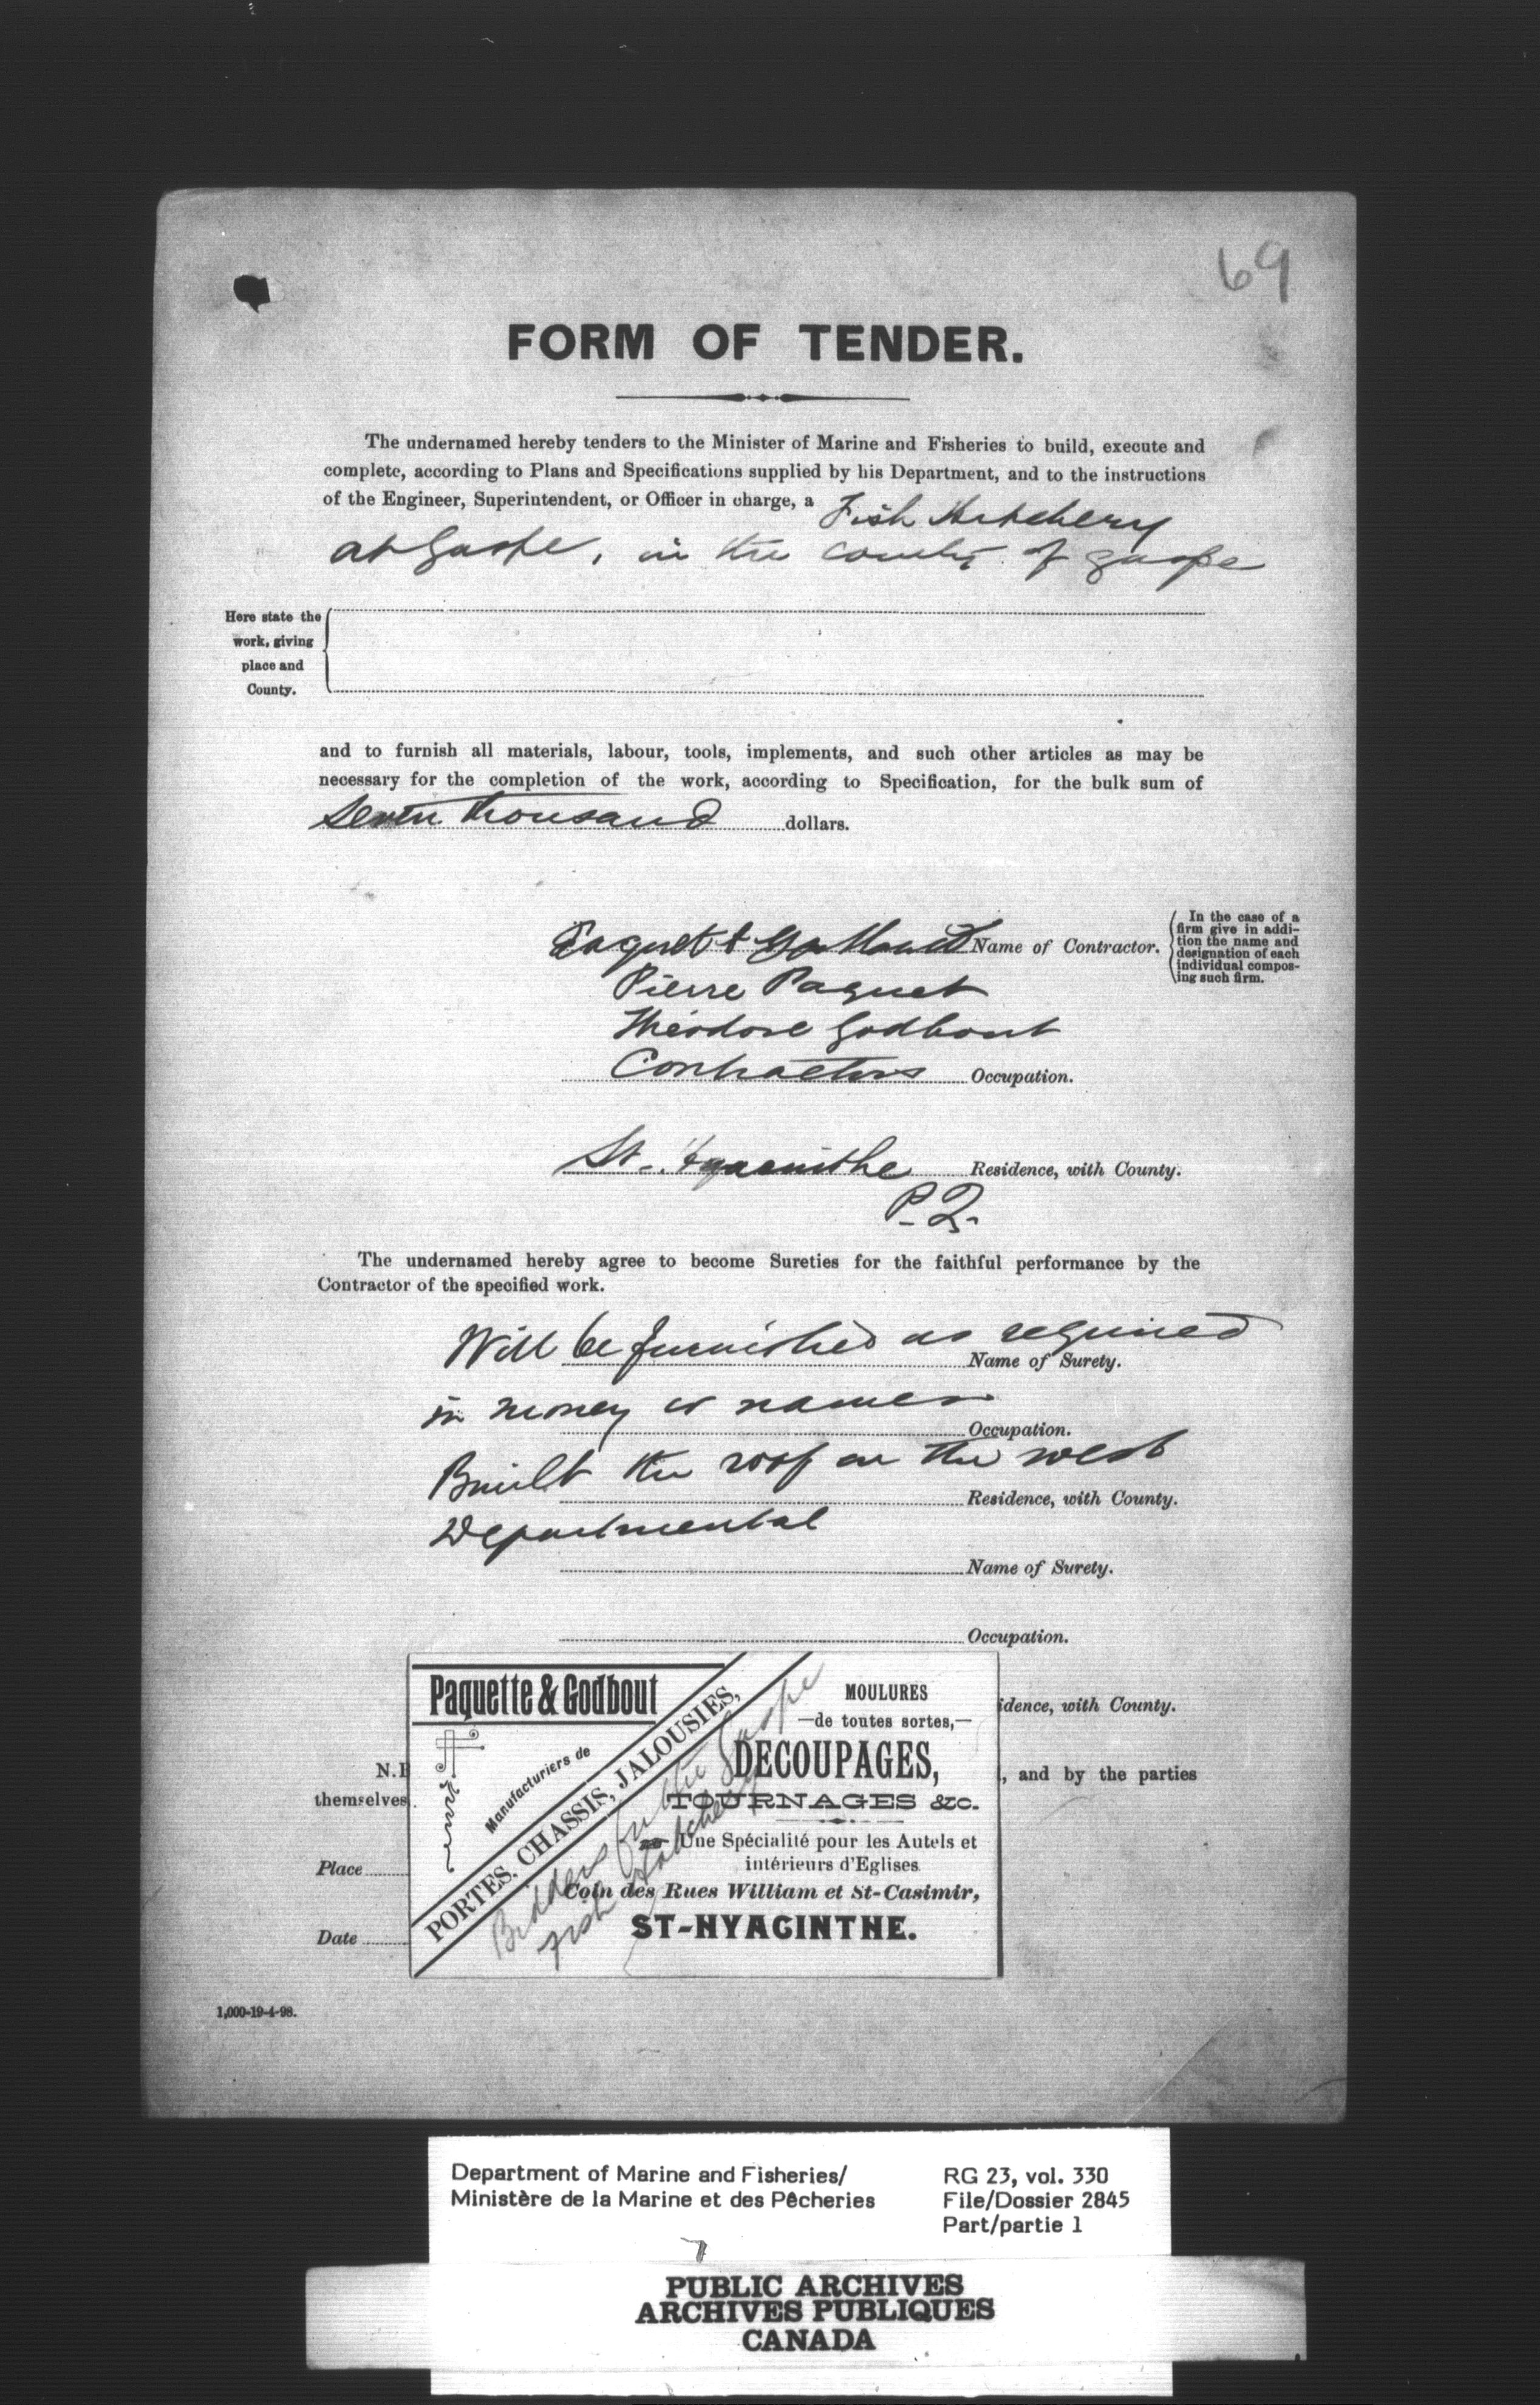 69
FORM OF TENDER.
The undernamed hereby tenders to the Minister of Marine and Fisheries to build, execute and
complete, according to Plans and Specifications supplied by his Department, and to the instructions
of the Engineer, Superintendent, or Officer in charge, a Fish Hatchery
at Gaspe, in the County of Gaspe
Here state the
work, giving
place and
County.
and to furnish all materials, labour, tools, implements, and such other articles as may be
necessary for the completion of the work, according to Specification, for the bulk sum of
Seven thousand dollars.
Paquet & Godbout Name of Contractor.
In the case of a
firm give in addi-
tion the name and
designation of each
individual compos-
ing such firm.
Pierre Paquet
Théodore Godbout
Contractors Occupation.
St. Hyacinthe Residence, with County.
P.Q.
The undernamed hereby agree to become Sureties for the faithful performance by the
Contractor of the specified work.
Will be furnished as required
Name of Surety.
in money or names
Occupation.
Built the roof on the west
Residence, with County.
Departmental
Name of Surety.
Occupation.
idence, with County.
N.B
, and by the parties
themselves.
Place
Date
Paquette & Godbout
Manufacturiers de
PORTES, CHASSIS, JALOUSIES,
MOULURES
—de toutes sortes,—
DECOUPAGES,
TOURNAGES &c.
Une Spécialité pour les Autels et
intérieurs d'Eglises
Coin des Rues William et St-Casimir,
ST-HYACINTHE.
Bidders for the Gaspe
Fish Hatchery
1,000-19-4-98.
Department of Marine and Fisheries/
Ministère de la Marine et des Pêcheries
RG 23, vol. 330
File/Dossier 2845
Part/partie 1
PUBLIC ARCHIVES
ARCHIVES PUBLIQUES
CANADA